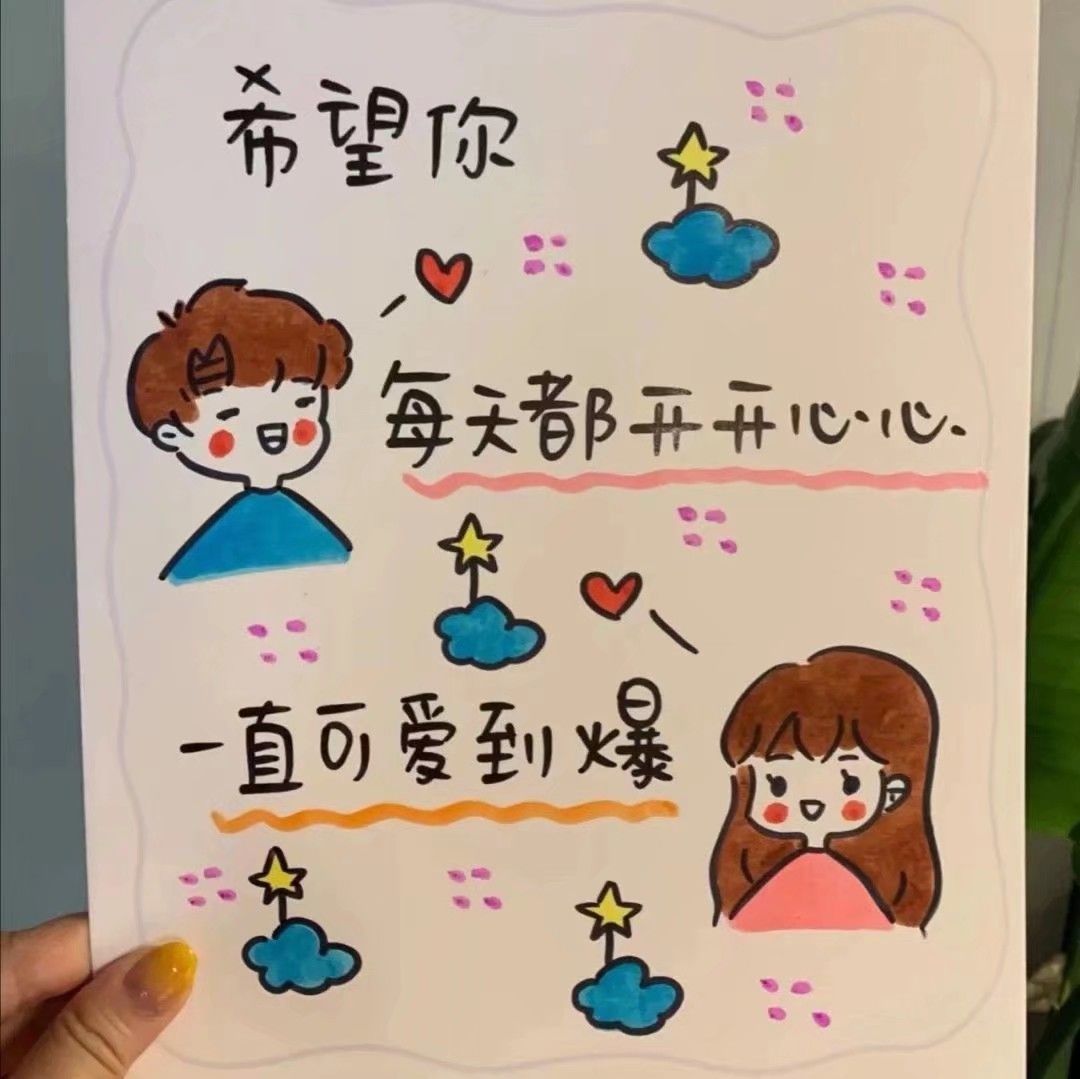 希望你
每天都开开心心.
一直可爱到爆